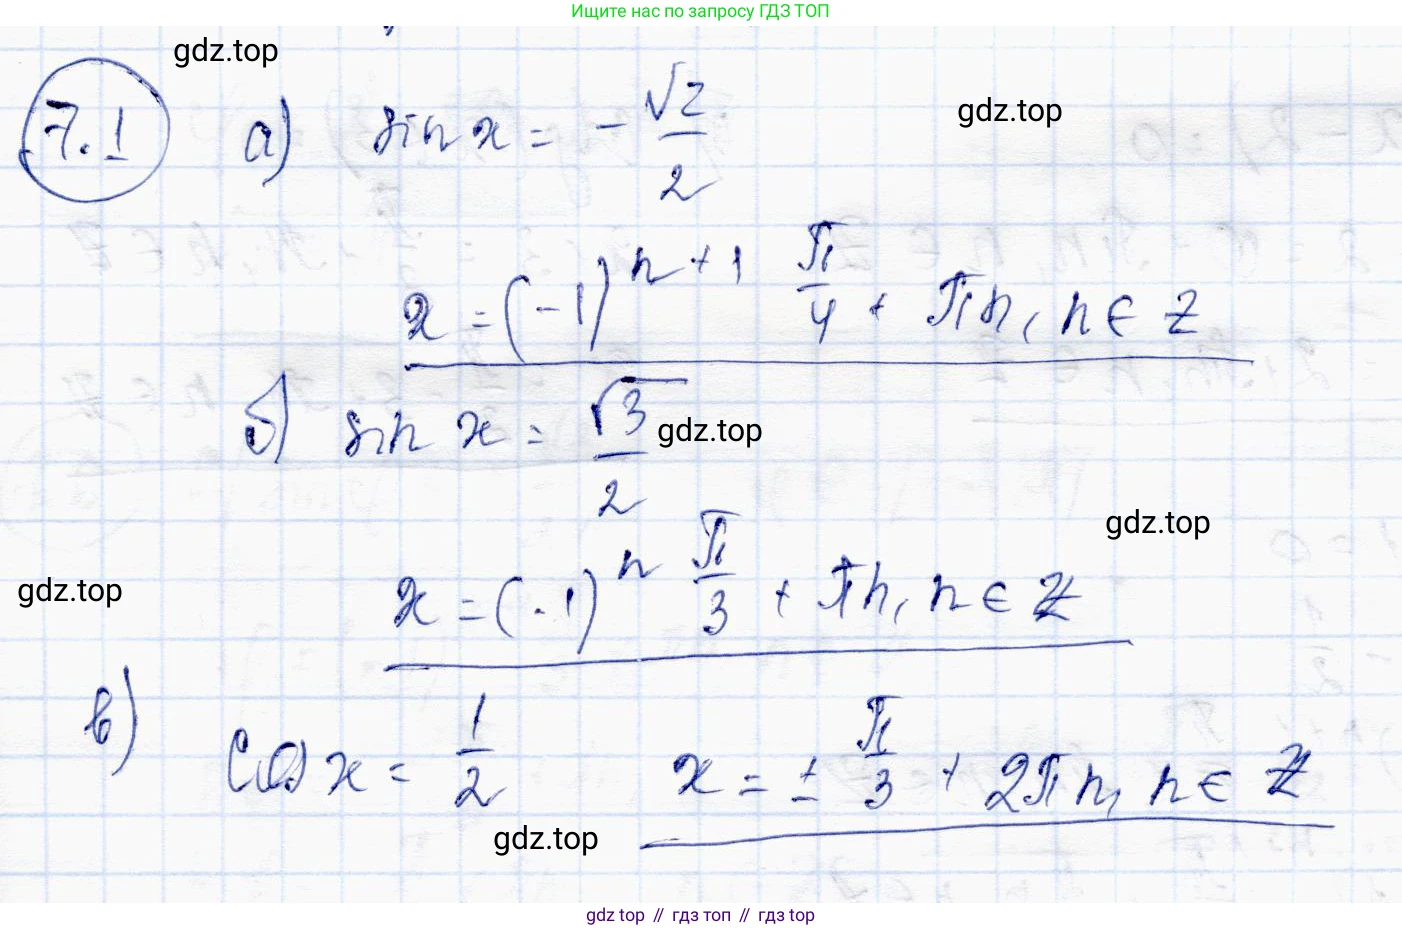 Ищите нас по запросу ГДЗ ТОП
gdz.top
7.1 а) sin x = - √2/2
gdz.top
x = (-1)^{n+1} π/4 + πn, n ∈ Z
б) sin x = √3/2
gdz.top
gdz.top
gdz.top
x = (-1)^n π/3 + πn, n ∈ Z
в) cos x = 1/2 x = ± π/3 + 2πn, n ∈ Z
gdz.top
gdz top // гдз топ // гдз top